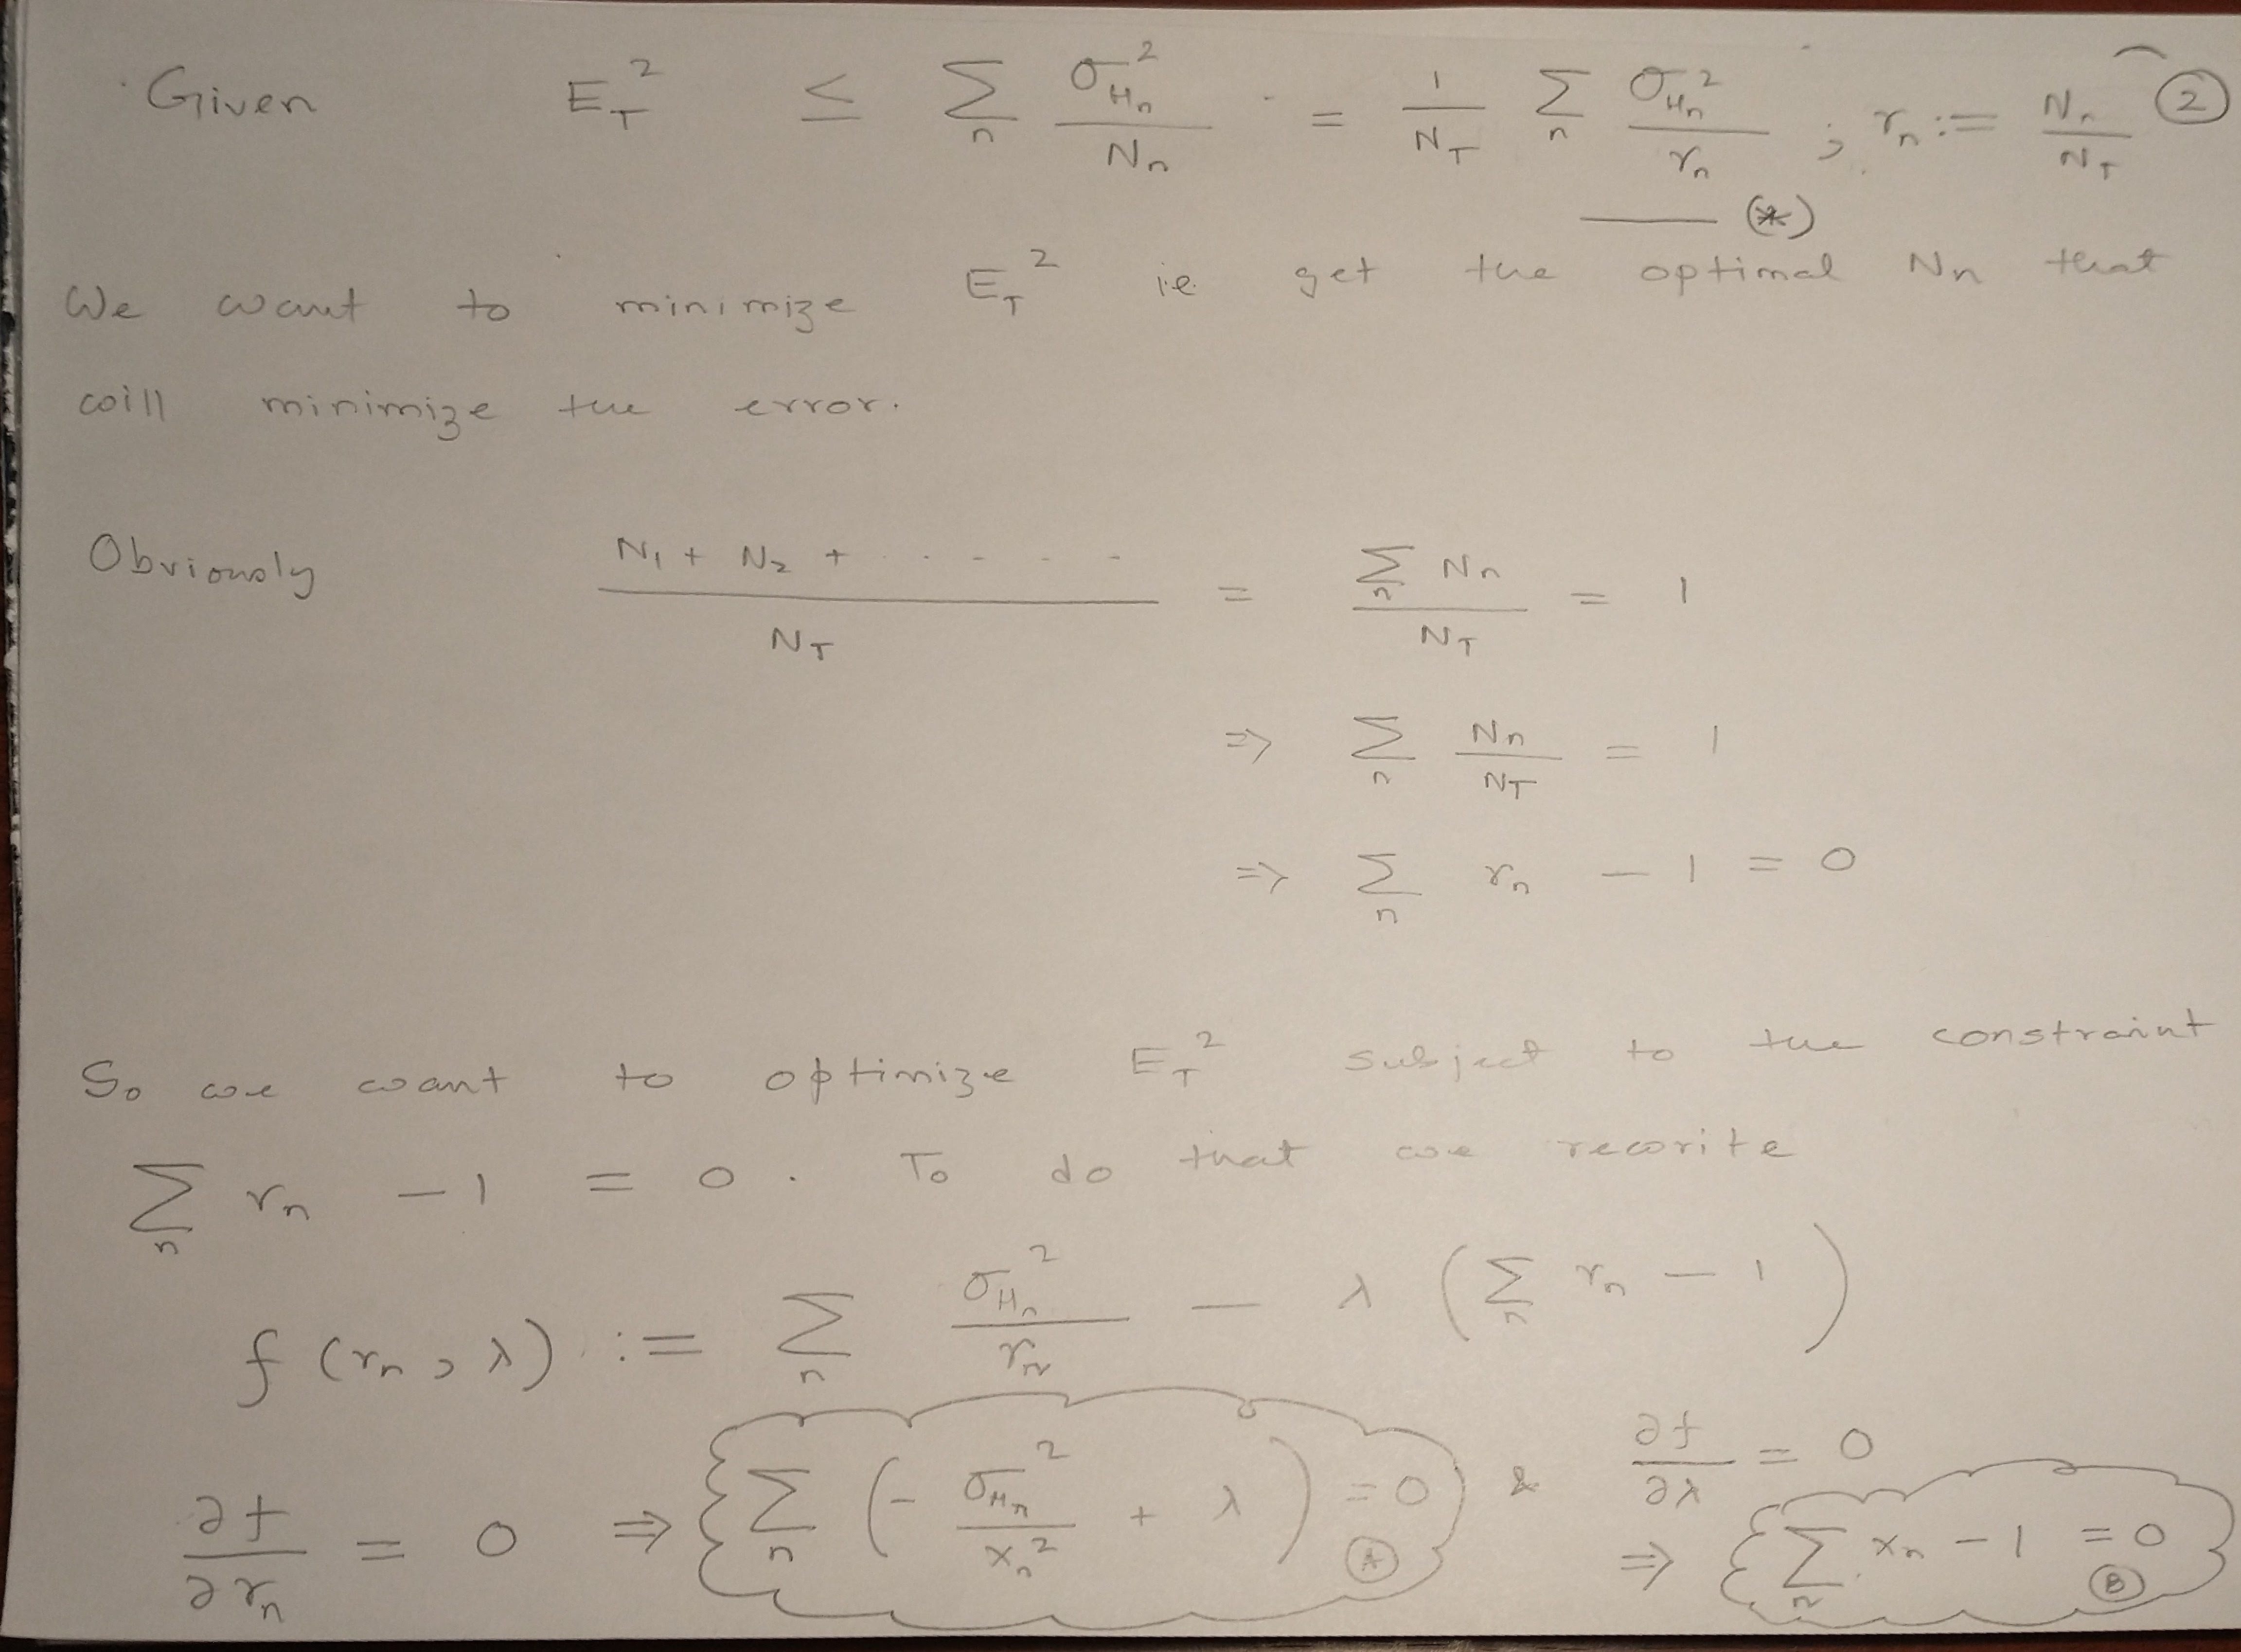 Given E_T^2 ≤ Σ_n σ_{H_n}^2 / N_n = 1/N_T Σ_n σ_{H_n}^2 / r_n ; r_n := N_n / N_T ②
—— (*)
We want to minimize E_T^2 ie get the optimal N_n that
will minimize the error.
Obviously (N_1 + N_2 + ......) / N_T = Σ_n N_n / N_T = 1
⇒ Σ_n N_n / N_T = 1
⇒ Σ_n r_n - 1 = 0
So we want to optimize E_T^2 subject to the constraint
Σ_n r_n - 1 = 0. To do that we rewrite
f(r_n, λ) := Σ_n σ_{H_n}^2 / r_n - λ (Σ_n r_n - 1)
∂f/∂r_n = 0 ⇒ Σ_n (- σ_{H_n}^2 / x_n^2 + λ) = 0 Ⓐ & ∂f/∂λ = 0
⇒ Σ_n x_n - 1 = 0 Ⓑ